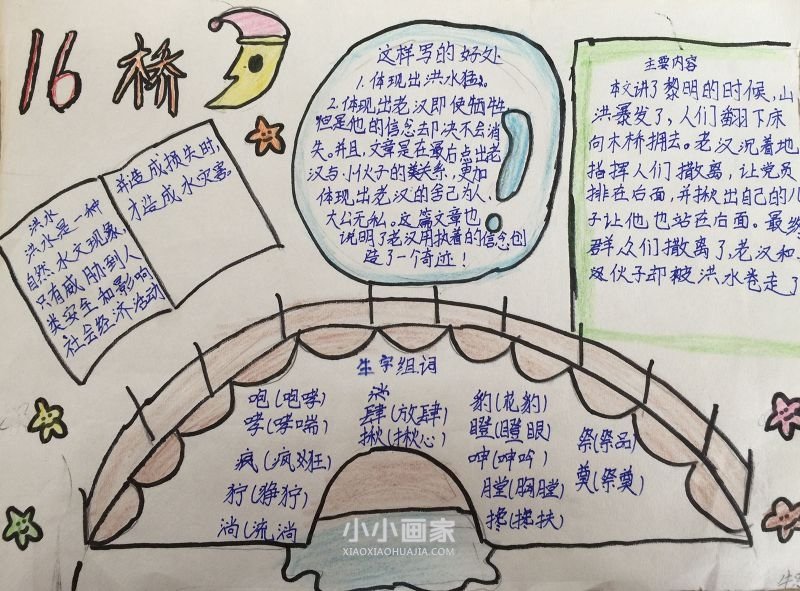 16 桥
这样写的好处
1. 体现出洪水猛。
2. 体现出老汉即使牺牲
但是他的信念去卩决不会消
失。并且,文章是在最后点出老
汉与小伙子的关系,更加
体现出老汉的舍己为人、
大公无私。这篇文章也
说明了老汉用执着的信念创
造了一个奇迹!
主要内容
本文讲了黎明的时候,山
洪暴发了,人们翻下床
向木桥拥去。老汉沉着地
指挥人们撤离,让党员
排在后面,并揪出自己的儿
子让他也站在后面。最终
群众们撤离了,老汉和
伙子却被洪水卷走了
洪水
洪水是一种
自然水文现象,
只有威胁到人
类安全和影响
社会经济活动
并造成损失时,
才造成水灾害。
生字组词
咆(咆哮)
哮(哮喘)
疯(疯狂)
狞(狰狞)
淌(流淌)
肆(放肆)
揪(揪心)
豹(花豹)
瞪(瞪眼)
呻(呻吟)
膛(胸膛)
搀(搀扶)
祭(祭品)
奠(祭奠)
小小画家
XIAOXIAOHUAJIA.COM